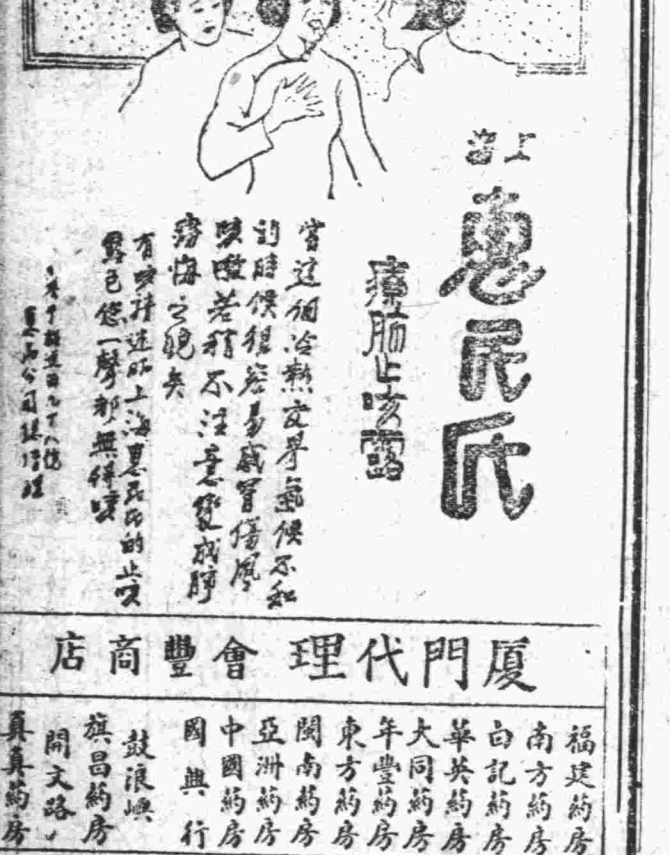 上海
惠民氏
療肺止咳露
當這個冷熱交學氣候不和
的時候很容易感冒傷風
咳嗽若稍不注意變成肺
癆悔之晚矣
有咳辞述昭上海惠民氏的止咳
露包您一聲都無得咳
惠民公司經理
厦門代理 會豐商店
福建葯房
南方葯房
白記葯房
華英葯房
大同葯房
年豐葯房
東方葯房
閩南葯房
亞洲葯房
中國葯房
國興行
鼓浪嶼
旗昌葯房
開文路
真真葯房